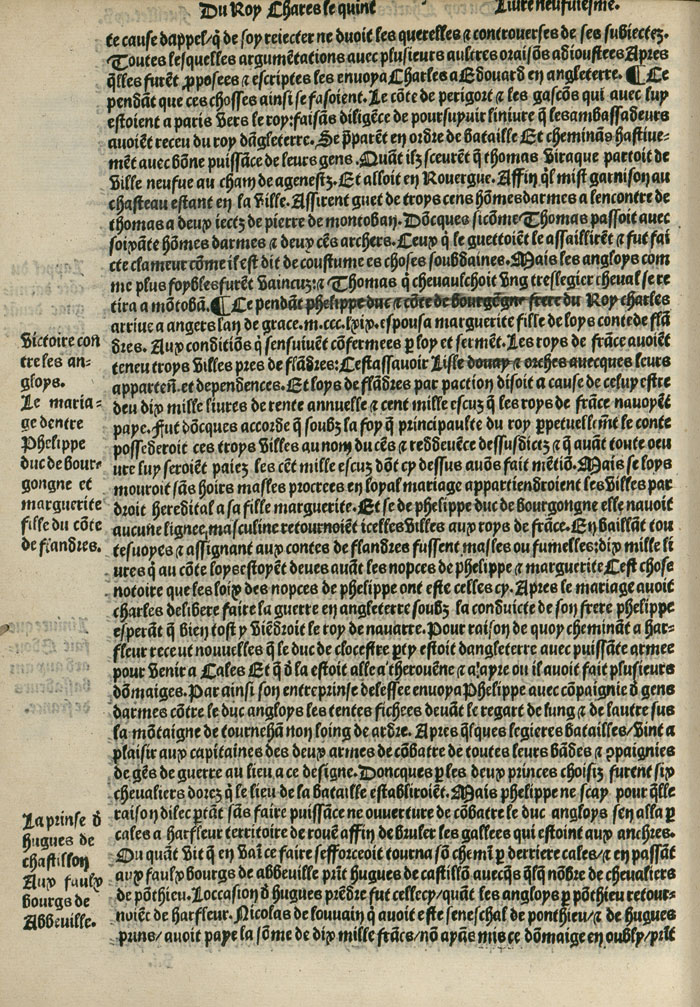 Du Roy Charles le quint Liure neufuiesme.
te cause dappel/q̃ de soy reiecter ne duoit les querelles ⁊ controuerses de ses subiectez.
Toutes lesquelles argumẽtations auec plusieurs aultres oraisõs adioustees Apres
q̃lles furẽt ꝓposees ⁊ escriptes les enuoya Charles a Edouard en angleterre. ¶ Ce
pendãt que ces chosses ainsi se fasoient. Le cõte de perigort ⁊ les gascõs qui auec luy
estoient a paris vers le roy: faisãs diligẽce de poursuyuir liniure q̃ les ambassadeurs
auoiẽt receu du roy dãgleterre. Se ꝑparẽt en ordre de bataille Et cheminãs hastiue-
mẽt auec bõne puissãce de leurs gens. Quãt ilz sceurẽt q̃ thomas viraque partoit de
ville neufue au cham de agenestz. Et alloit en Rouergue. Affin q̃l mist garnison au
chasteau estant en la ville. Assirent guet de troys cens hõmes darmes a lencontre de
thomas a deux iectz de pierre de montoban. Dõcques sicõme Thomas passoit auec
soixãte hõmes darmes ⁊ deux cẽs archers. Ceux q̃ le guettoiẽt le assaillirẽt ⁊ fut fai
cte clameur cõme il est dit de coustume es choses soubdaines. Mais les angloys com
me plus foybles furẽt vaincuz: ⁊ Thomas q̃ cheuaulchoit vng treslegier cheual se re
tira a mõtobã. ¶ Ce pendãt phelippe duc ⁊ cõte de bourgẽgne frere du Roy charles
arriue a angers lan de grace. m.ccc.lxix. espousa marguerite fille de loys conte de flã
dres. Aux conditiõs q̃ sensuiuẽt cõfermees ꝑ loy et sermẽt. Les roys de frãce auoiẽt
teneu troys villes pres de flãdres: Cestassauoir Lisle douay ⁊ orches auecques leurs
apparteñ. et dependences. Et loys de flãdres par paction disoit a cause de celuy estre
deu dix mille liures de rente annuelle ⁊ cent mille escuz q̃ les roys de frãce nauoyẽt
paye. Fut dõcques accorde q̃ soubz la foy q̃ principaulte du roy ꝑpetuellem̃t le conte
possederoit ces troys villes au nom du cẽs ⁊ reddeuẽce dessusdictz ⁊ q̃ auãt toute oeu
ure luy seroiẽt paiez les cẽt mille escuz dõt cy dessus auõs fait mẽtiõ. Mais se loys
mouroit sãs hoirs masles procrees en loyal mariage appartiendroient les villes par
droit heredital a sa fille marguerite. Et se de phelippe duc de bourgongne elle nauoit
aucune lignee masculine retournoiẽt icelles villes aux roys de frãce. En baillãt tou
tesuoyes ⁊ assignant aux contes de flandres fussent masles ou fumelles: dix mille li
ures q̃ au cõte loys estoyẽt deues auãt les nopces de phelippe ⁊ marguerite Cest chose
notoire que les loix des nopces de phelippe ont este celles cy. Apres le mariage auoit
charles delibere faire la guerre en angleterre soubz la conduicte de son frere phelippe
esperãt q̃ bien tost y viẽdroit le roy de nauarre. Pour raison de quoy cheminãt a har-
fleur receut nouuelles q̃ le duc de clocestre ꝑty estoit dangleterre auec puissãte armee
pour venir a Cales Et q̃ d̃ la estoit alle a therouẽne ⁊ a ayre ou il auoit fait plusieurs
dõmaiges. Par ainsi son entreprinse delessee enuoya Phelippe auec cõpaignie d̃ gens
darmes cõtre le duc angloys les tentes fichees deuãt le regart de lung ⁊ de lautre sus
la mõtaigne de tournehãn non loing de ardre. Apres q̃lques legieres batailles/vint a
plaisir aux capitaines des deux armes de cõbatre de toutes leurs bãdes ⁊ ꝯpaignies
de gẽs de guerre au lieu a ce designe. Doncques ꝑ les deux princes choisiz furent six
cheualiers dorez q̃ le lieu de la bataille establiroiẽt. Mais phelippe ne scay pour q̃lle
raison dilec ꝑtãt sãs faire puissãce ne ouuerture de cõbatre le duc angloys sen alla ꝑ
cales a harfleur territoire de rouẽ affin de bruler les gallees qui estoint aux anchres.
Ou quãt vit q̃ en vaĩ ce faire sefforceoit tourna sõ chemĩ ꝑ derriere cales/⁊ en passãt
aux faulx bourgs de abbeuille prĩt hugues de castillõ auecq̃s q̃lq̃ nõbre de cheualiers
de põthieu. Loccasiõ d̃ hugues prẽdre fut cellecy/quãt les angloys ꝑ põthieu retour-
noiẽt de harfleur. Nicolas de louuain q̃ auoit este seneschal de ponthieu/⁊ de hugues
prins/auoit paye la sõme de dix mille frãcs/nõ ayãs mis ce dõmaige en oubly/prĩt
Victoire con
tre les an-
gloys.
Le maria-
ge dentre
Phelippe
duc de bour-
gongne et
marguerite
fille du cõte
de flandres.
La prinse d̃
hugues de
chastillon
Aux faulx
bourgs de
Abbeuille.